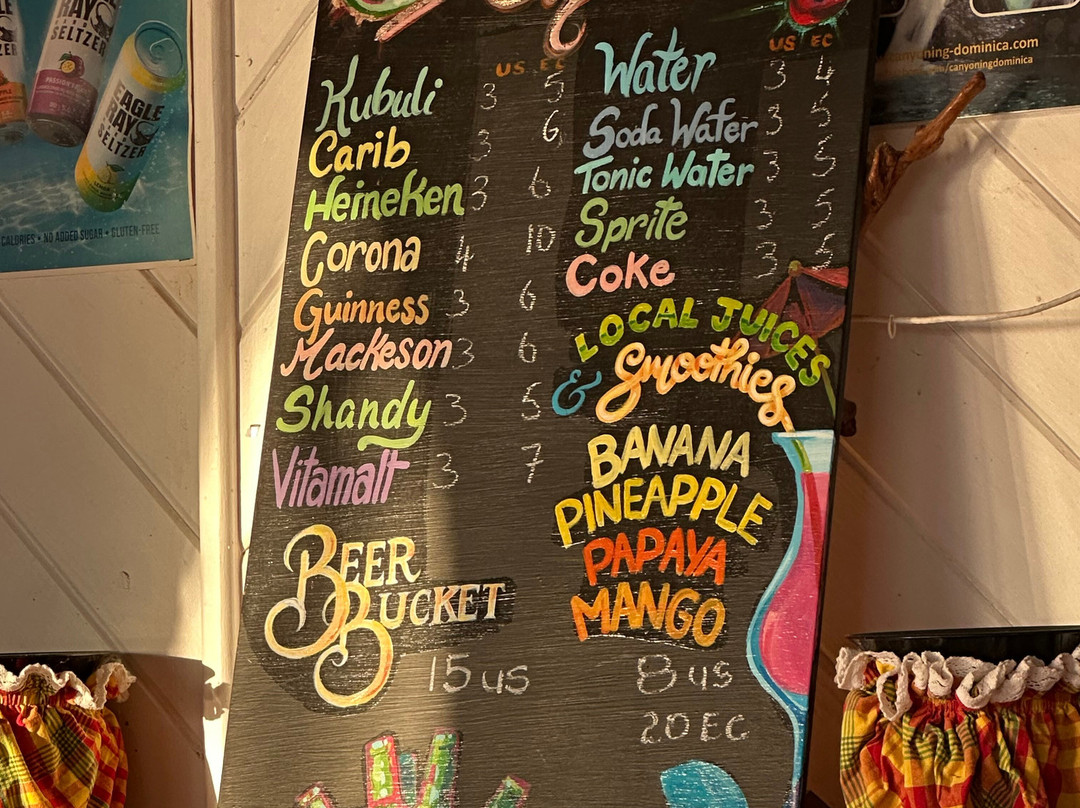 RAY
SELTZER
EAGLE
RAY
SELTZER
CALORIES • NO ADDED SUGAR • GLUTEN-FREE
US EC
Kubuli 3 5
Carib 3 6
Heineken 3 6
Corona 4 10
Guinness 3 6
Mackeson 3 6
Shandy 3 5
Vitamalt 3 7
BEER
BUCKET
15 us
US EC
Water 3 4
Soda Water 3 5
Tonic Water 3 5
Sprite 3 5
Coke 3 5
LOCAL JUICES
& Smoothies
BANANA
PINEAPPLE
PAPAYA
MANGO
8 us
20 EC
canyoning-dominica.com
/canyoningdominica